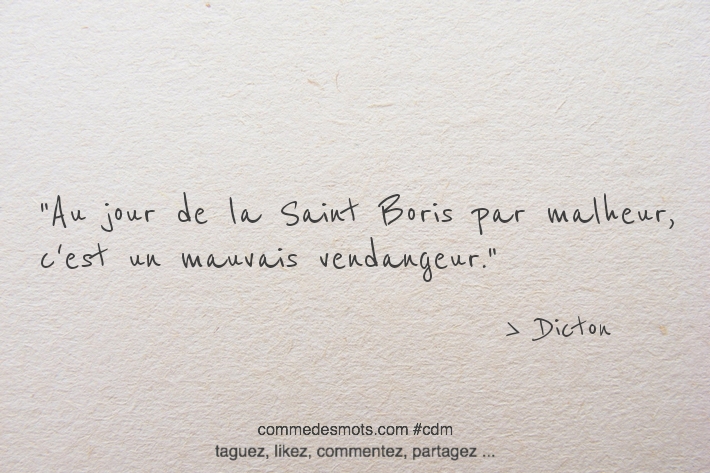 "Au jour de la Saint Boris par malheur,
c'est un mauvais vendangeur."
> Dicton
commedesmots.com #cdm
taguez, likez, commentez, partagez ...